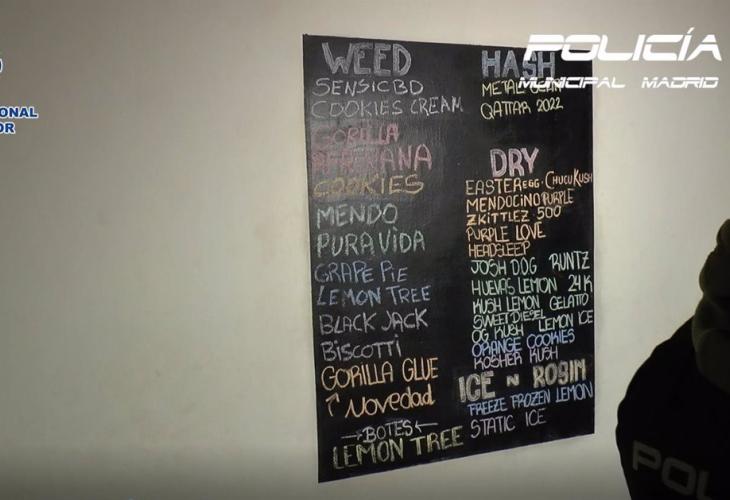 POLICÍA
MUNICIPAL MADRID
ONAL
OR
WEED
SENSICBD
COOKIES CREAM
GORILLA
COOKIES
MENDO
PURA VIDA
GRAPE PIE
LEMON TREE
BLACK JACK
BISCOTTI
GORILLA GLUE
Novedad
BOTES
LEMON TREE
HASH
METAL
QATTAR 2022
DRY
EASTER EGG · CHUCU KUSH
MENDOCINO PURPLE
ZKITTLEZ 500
PURPLE LOVE
HEADSLEEP
JOSH DOG RUNTZ
HUEVAS LEMON 24K
KUSH LEMON GELATTO
SWEET DIESEL
OG KUSH LEMON ICE
ORANGE COOKIES
KOSHER KUSH
ICE N ROSIN
FREEZE FROZEN LEMON
STATIC ICE
POL